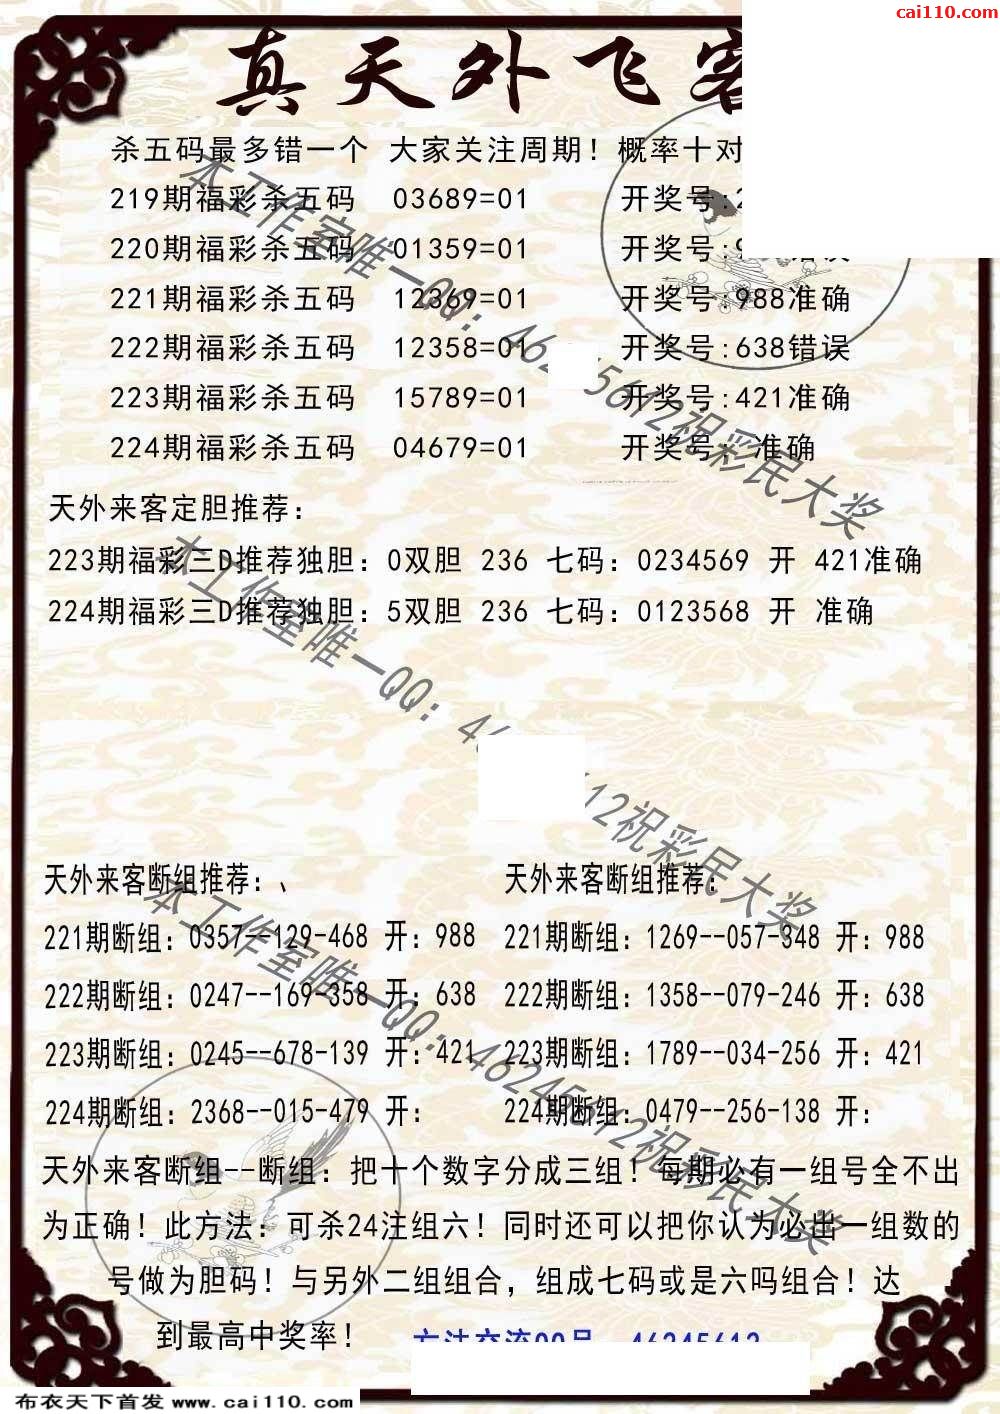 cai110.com
真天外飞客
杀五码最多错一个 大家关注周期！概率十对
219期福彩杀五码 03689=01 开奖号:2
220期福彩杀五码 01359=01 开奖号:9 错误
221期福彩杀五码 12369=01 开奖号:988准确
222期福彩杀五码 12358=01 开奖号:638错误
223期福彩杀五码 15789=01 开奖号:421准确
224期福彩杀五码 04679=01 开奖号: 准确
天外来客定胆推荐：
223期福彩三D推荐独胆：0双胆 236 七码：0234569 开 421准确
224期福彩三D推荐独胆：5双胆 236 七码：0123568 开 准确
天外来客断组推荐：、
221期断组：0357--129-468 开：988
222期断组：0247--169-358 开：638
223期断组：0245--678-139 开：421
224期断组：2368--015-479 开：
天外来客断组推荐：
221期断组：1269--057-348 开：988
222期断组：1358--079-246 开：638
223期断组：1789--034-256 开：421
224期断组：0479--256-138 开：
天外来客断组--断组：把十个数字分成三组！每期必有一组号全不出
为正确！此方法：可杀24注组六！同时还可以把你认为必出一组数的
号做为胆码！与另外二组组合，组成七码或是六吗组合！达
到最高中奖率！
方法交流QQ号：46245612
本工作室唯一QQ：462 5612祝彩民大奖
本工作室唯一QQ：46 12祝彩民大奖
本工作室唯一QQ：46245612祝彩民大奖
布衣天下首发 www.cai110.com